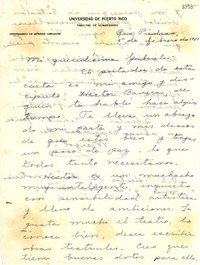 UNIVERSIDAD DE PUERTO RICO
FACULTAD DE HUMANIDADES
DEPARTAMENTO DE ESTUDIOS HISPÁNICOS
Río Piedras
5 de febrero de
Mi queridísima
El portador de esta
carta es mi amigo y discípulo
Héctor
quien te hablé hace algún
tiempo. Te lleva un abrazo
de mi parte y más deseos
de que estés bien y tengas
un poco de paz, lo que
todos tanto necesitamos.
Héctor es un muchacho
muy inteligente, inquieto
con sensibilidad artística
y lleno de ambiciones. Le
gusta mucho el teatro, lo
conoce bien, desea escribir
obras teatrales. Creo que
tiene buenas dotes para ello.